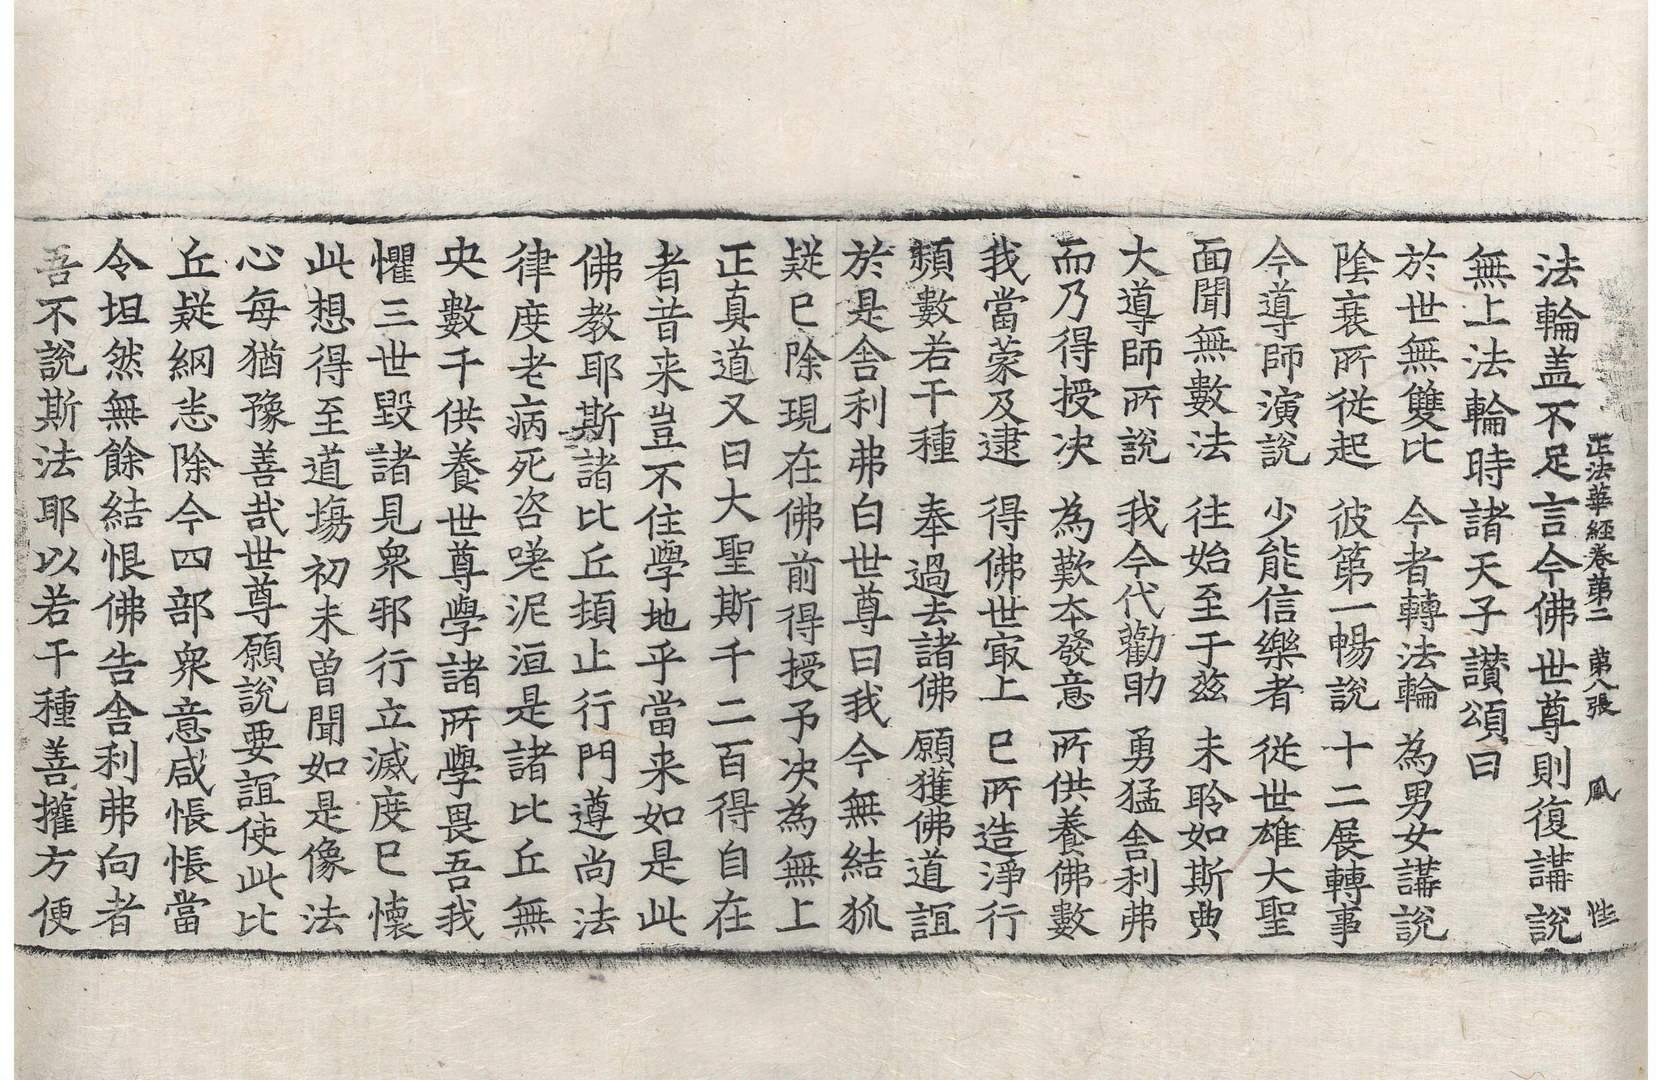 正法華經卷第二 第八張 鳳 性
法輪盖不足言今佛世尊則復講說
無上法輪時諸天子讃頌曰
於世無雙比 今者轉法輪 為男女講說
陰衰所從起 彼第一暢說 十二展轉事
今導師演說 少能信樂者 從世雄大聖
面聞無數法 往始至于兹 未聆如斯典
大導師所說 我今代勸助 勇猛舍利弗
而乃得授决 為歎本發意 所供養佛數
我當蒙及逮 得佛世㝡上 已所造淨行
頻數若干種 奉過去諸佛 願獲佛道誼
於是舍利弗白世尊曰我今無結狐
疑已除現在佛前得授予决為無上
正真道又曰大聖斯千二百得自在
者昔来豈不住學地乎當来如是此
佛教耶斯諸比丘㨋止行門遵尚法
律度老病死咨嗟泥洹是諸比丘無
央數千供養世尊學諸所學畏吾我
懼三世毀諸見衆邪行立滅度已懷
此想得至道塲初未曽聞如是像法
心每猶豫善哉世尊願說要誼使此比
丘疑網悉除今四部衆意咸悵悵當
令坦然無餘結恨佛告舍利弗向者
吾不說斯法耶以若干種善攉方便